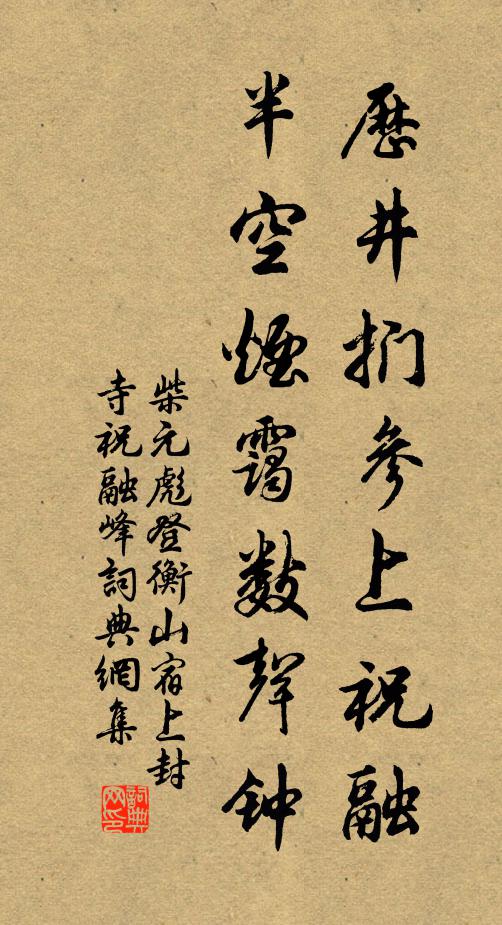 歷井捫參上祝融
半空煙靄數聲钟
柴元彪登衡山宿上封
寺祝融峰詞典網集
詞典
网印